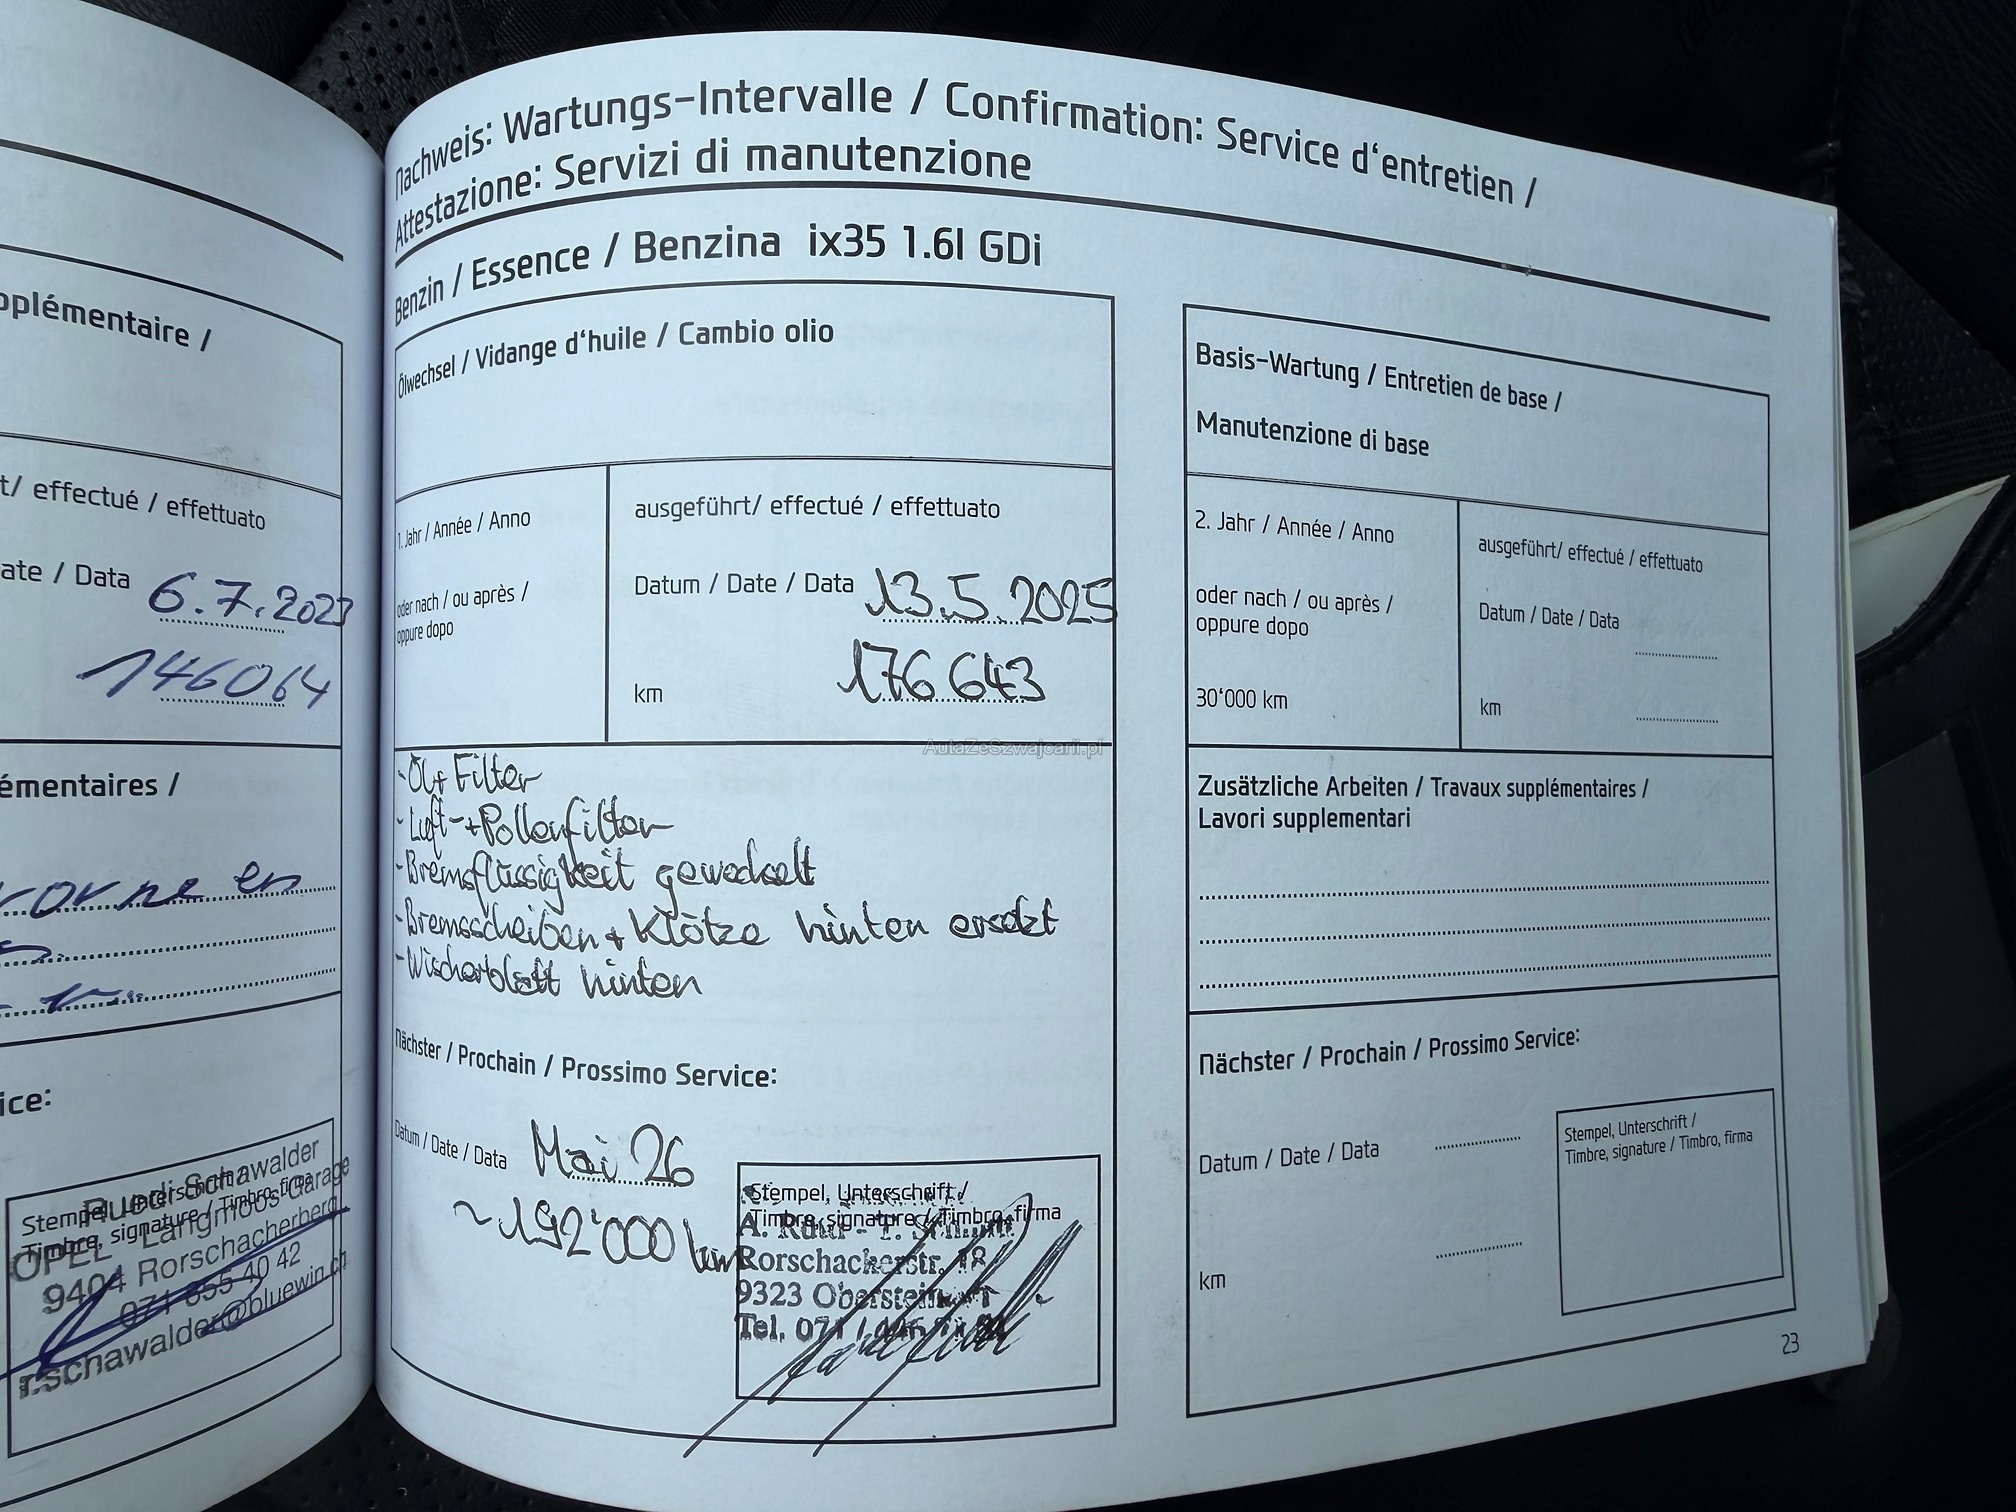 pplémentaire /
t/ effectué / effettuato
ate / Data 6.7.2023
146064
émentaires /
vorne en
ice:
Stempel, Unterschrift /
Timbre, signature / Timbro, firma
Ruedi Schawalder
OPEL Langmoos-Garage
9404 Rorschacherberg
071 855 40 42
r.schawalder@bluewin.ch
Nachweis: Wartungs-Intervalle / Confirmation: Service d‘entretien /
Attestazione: Servizi di manutenzione
Benzin / Essence / Benzina ix35 1.6l GDi
Ölwechsel / Vidange d‘huile / Cambio olio
1. Jahr / Année / Anno
oder nach / ou après /
oppure dopo
ausgeführt/ effectué / effettuato
Datum / Date / Data 13.5.2025
km 176 643
AutaZeSzwajcarii.pl
- Öl + Filter
- Luft- + Pollenfilter
- Bremsflüssigkeit gewechselt
- Bremsscheiben + Klötze hinten ersetzt
- Wischerblatt hinten
Nächster / Prochain / Prossimo Service:
Datum / Date / Data Mai 26
~192'000 km
Stempel, Unterschrift /
Timbre, signature / Timbro, firma
Rorschacherstr. 18
9323 Obersteinach
Tel. 071
Basis-Wartung / Entretien de base /
Manutenzione di base
2. Jahr / Année / Anno
oder nach / ou après /
oppure dopo
30‘000 km
ausgeführt/ effectué / effettuato
Datum / Date / Data
km
Zusätzliche Arbeiten / Travaux supplémentaires /
Lavori supplementari
Nächster / Prochain / Prossimo Service:
Datum / Date / Data
km
Stempel, Unterschrift /
Timbre, signature / Timbro, firma
23